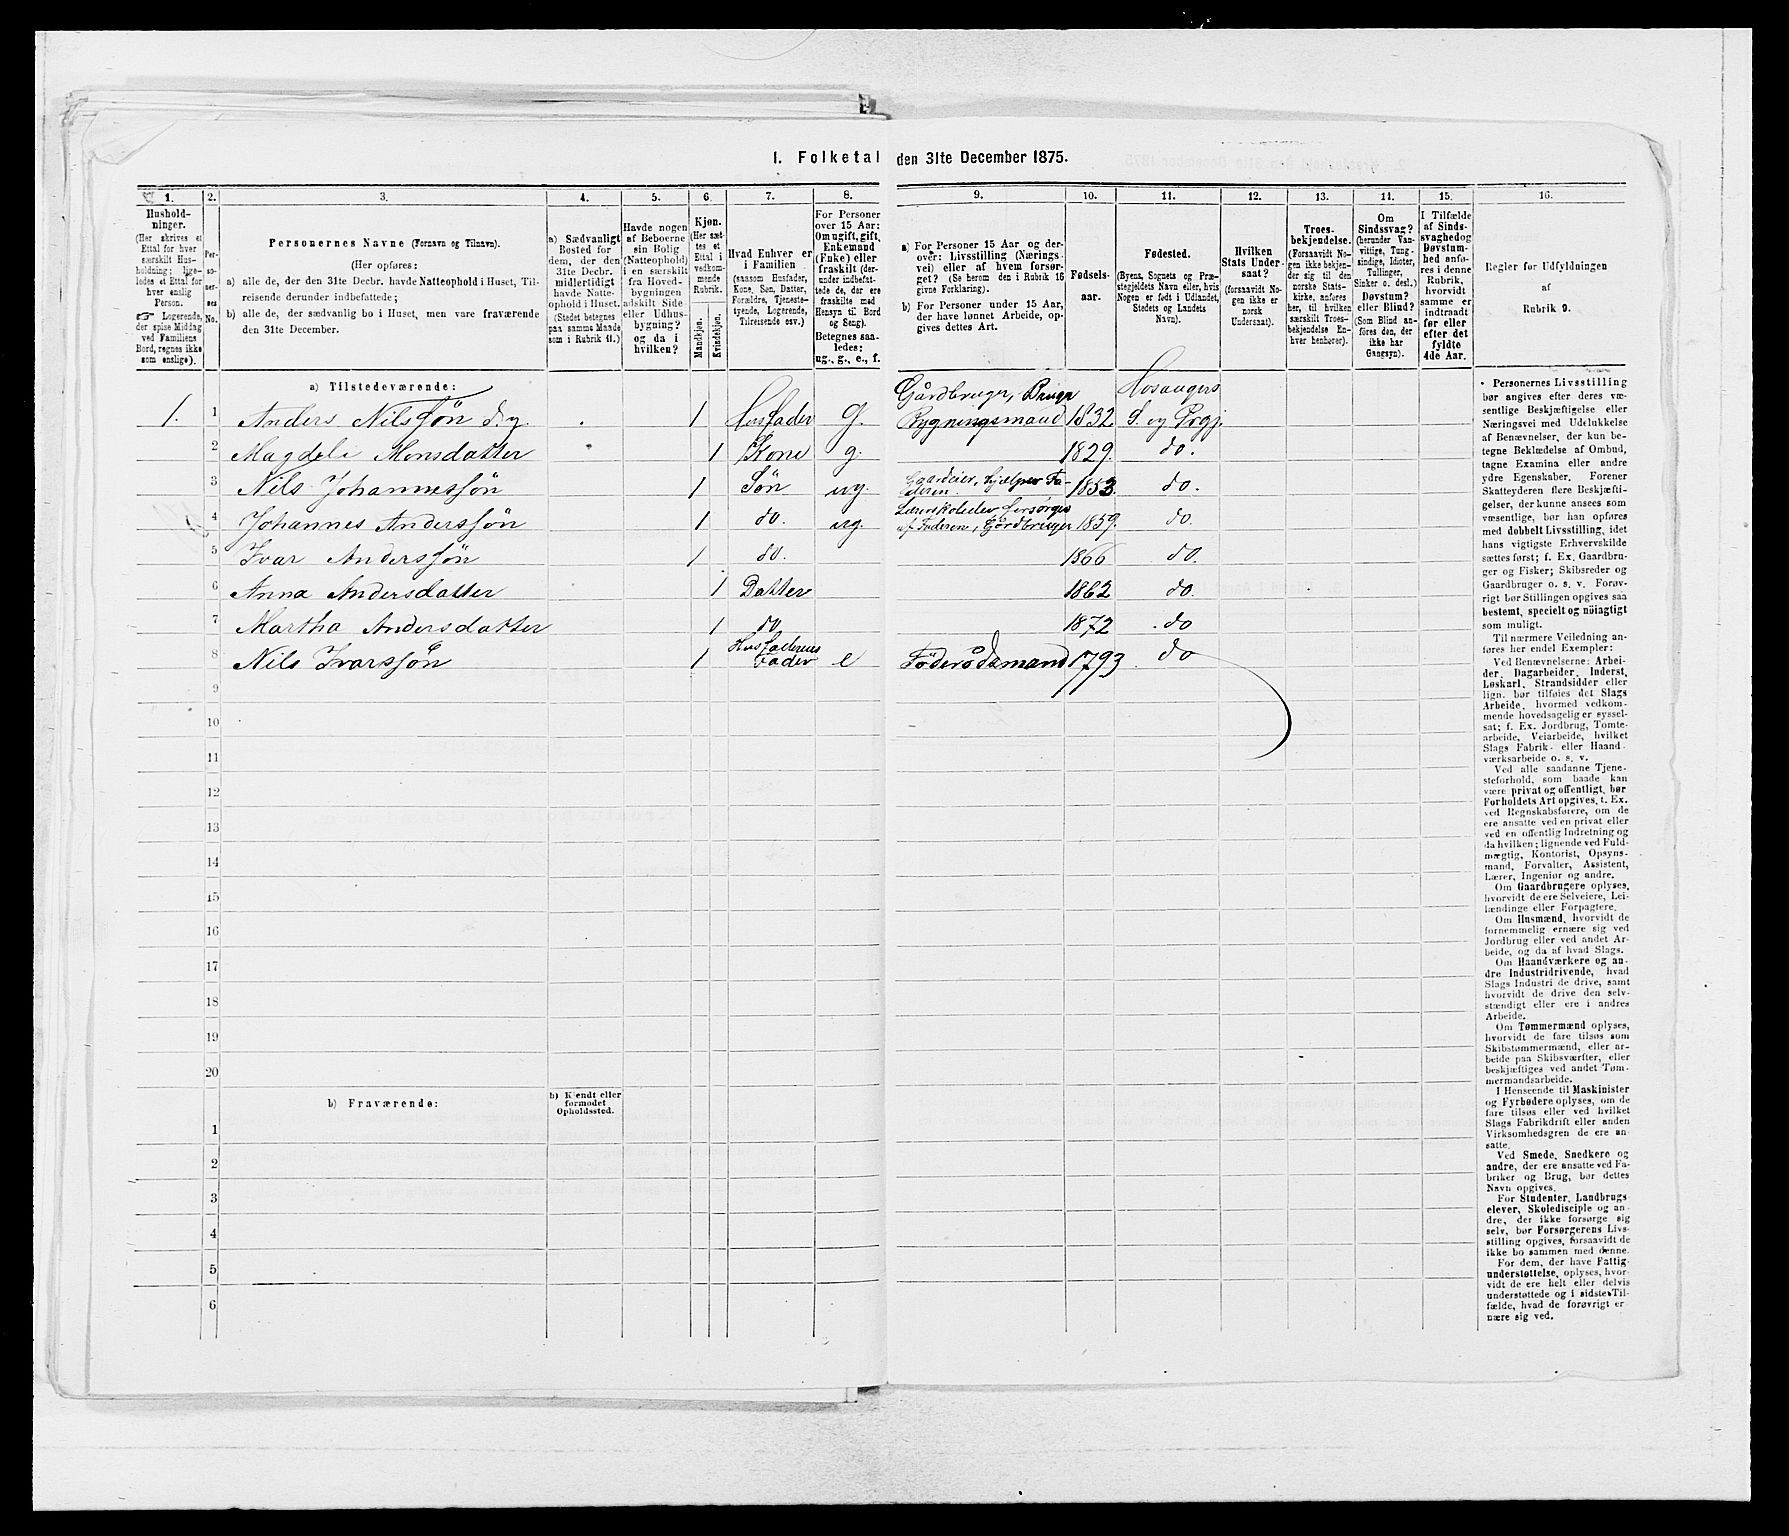 1. Folketal den 31te December 1875.
1. 2. 3. 4. 5. 6. 7. 8. 9. 10. 11. 12. 13. 14. 15. 16.
Hushold-
ninger.
(Her skrives et
Ettal for hver
særskilt Hus-
holdning; lige-
ledes et Ettal for
hver enslig
Person.
☞ Logerende,
der spise Middag
ved Familiens
Bord, regnes ikke
som enslige).
Per-
so-
ner-
nes
No.
Personernes Navne (Fornavn og Tilnavn).
(Her opføres:
a) alle de, der den 31te Decbr. havde Natteophold i Huset, Til-
reisende derunder indbefattede;
b) alle de, der sædvanlig bo i Huset, men vare fraværende
den 31te December.
a) Sædvanligt
Bosted for
dem, der den
31te Decbr.
midlertidigt
havde Natte-
ophold i Huset.
(Stedet betegnes
paa samme Maade
som i Rubrik 11.)
Havde nogen
af Beboerne
sin Bolig
(Natteophold)
i en særskilt
fra Hoved-
bygningen
adskilt Side
eller Udhus-
bygning?
og da i
hvilken?
Kjøn.
(Her sæt-
tes et
Ettal i
vedkom-
mende
Rubrik.
Mandkjøn.
Kvindekjøn.
Hvad Enhver er
i Familien
(saasom Husfader,
Kone, Søn, Datter,
Forældre, Tjeneste-
tyende, Logerende,
Tilreisende osv.)
For Personer
over 15 Aar:
Om ugift, gift,
Enkemand
(Enke) eller
fraskilt (der-
under indbefat-
tede de, der ere
fraskilte med
Hensyn til Bord
og Seng).
Betegnes saa-
ledes:
ug., g., e., f.
a) For Personer 15 Aar og der-
over: Livsstilling (Nærings-
vei) eller af hvem forsør-
get? (Se herom den i Rubrik 16
givne Forklaring).
b) For Personer under 15 Aar,
der have lønnet Arbeide, op-
gives dettes Art.
Fødsels-
aar.
Fødested.
(Byens, Sognets og Præ-
stegjeldets Navn eller, hvis
Nogen er født i Udlandet,
Stedets og Landets
Navn).
Hvilken
Stats Under-
saat?
(forsaavidt No-
gen ikke er
norsk
Undersaat).
Troes-
bekjendelse.
(Forsaavidt No-
gen ikke bekjen-
der sig til den
norske Stats-
kirke, anføres
her, til hvilken
særskilt Troes-
bekjendelse En-
hver henhører).
Om
Sindssvag?
(herunder Van-
vittige, Tung-
sindige, Idioter,
Tullinger,
Sinker o. desl.)
Døvstum?
eller Blind?
(Som Blind an-
føres den, der
ikke har
Gangsyn).
I Tilfælde
af Sinds-
svaghed og
Døvstum-
hed anfø-
res i denne
Rubrik,
hvorvidt
samme er
indtraadt
før eller
efter det
fyldte
4de Aar.
Regler for Udfyldningen
af
Rubrik 9.
a) Tilstedeværende:
Gårdbruger, Hosangers
1. 1 Anders Nilssøn d.y. 1 Husfader g. Bygningsmand 1832 S. og Prgj.
2 Magdeli Monsdatter 1 Kone g. 1829. do.
Gaardeier, hjælper Fa-
3 Nils Johannessøn 1 Søn ug. deren. 1853. do.
Lærerskoleelev forsørges
4 Johannes Anderssøn 1 do. ug. af Faderen, Gårdbruger 1859. do.
5 Ivar Anderssøn 1 do. 1866 do.
6 Anna Andersdatter 1 Datter 1862 do.
7 Martha Andersdatter 1 do 1872 do
Husfaderens
8 Nils Ivarssøn 1 Fader e Föderådsmand 1793 do
9
10
11
12
13
14
15
16
17
18
19
20
b) Fraværende:
b) Kjendt eller
formodet
Opholdssted.
1
2
3
4
5
6
Personernes Livsstilling
bør angives efter deres væ-
sentlige Beskjæftigelse eller
Næringsvei med Udelukkelse
af Benævnelser, der kun be-
tegne Beklædelse af Ombud,
tagne Examina eller andre
ydre Egenskaber. Forener
Skatteyderen flere Beskjæfti-
gelser, der kunne ansees som
væsentlige, bør han opføres
med dobbelt Livsstilling, idet
hans vigtigste Erhvervskilde
sættes først; f. Ex. Gaardbru-
ger og Fisker; Skibsreder og
Gaardbruger o. s. v. Forøv-
rigt bør Stillingen opgives saa
bestemt, specielt og nöiagtigt
som muligt.
Til nærmere Veiledning an-
føres her endel Exempler:
Ved Benævnelserne: Arbei-
der, Dagarbeider, Inderst,
Løskarl, Strandsidder eller
lign. bør tilføies det Slags
Arbeide, hvormed vedkom-
mende hovedsagelig er syssel-
sat; f. Ex. Jordbrug, Tomte-
arbeide, Veiarbeide, hvilket
Slags Fabrik- eller Haand-
værksarbeide o. s. v.
Ved alle saadanne Tjene-
steforhold, som baade kan
være privat og offentligt, bør
Forholdets Art opgives, t. Ex.
ved Regnskabsførere, om de
ere ansatte ved en privat eller
ved en offentlig Indretning og
da hvilken; lignende ved Fuld-
mægtig, Kontorist, Opsyns-
mand, Forvalter, Assistent,
Lærer, Ingeniør og andre.
Om Gaardbrugere oplyses,
hvorvidt de ere Selveiere, Lei-
lændinge eller Forpagtere.
Om Husmænd, hvorvidt de
fornemmelig ernære sig ved
Jordbrug eller ved andet Ar-
beide, og da af hvad Slags.
Om Haandværkere og an-
dre Industridrivende, hvad
Slags Industri de drive, samt
hvorvidt de drive den selv-
stændigt eller ere i andres
Arbeide.
Om Tømmermænd oplyses,
hvorvidt de fare tilsøs som
Skibstømmermænd, eller ar-
beide paa Skibsværfter, eller
beskjæftiges ved andet Tøm-
mermandsarbeide.
I Henseende til Maskinister
og Fyrbødere oplyses, om de
fare tilsøs eller ved hvilket
Slags Fabrikdrift eller anden
Virksomhedsgren de ere an-
satte.
Ved Smede, Snedkere og
andre, der ere ansatte ved Fa-
briker og Brug, bør dettes
Navn opgives.
For Studenter, Landbrugs-
elever, Skoledisciple og an-
dre, der ikke forsørge sig
selv, bør Forsørgerens Livs-
stilling opgives, forsaavidt de
ikke bo sammen med denne.
For dem, der have Fattig-
understøttelse, oplyses, hvor-
vidt de ere helt eller delvis
understøttede og i sidste Til-
fælde, hvad de forøvrigt er
nære sig ved.